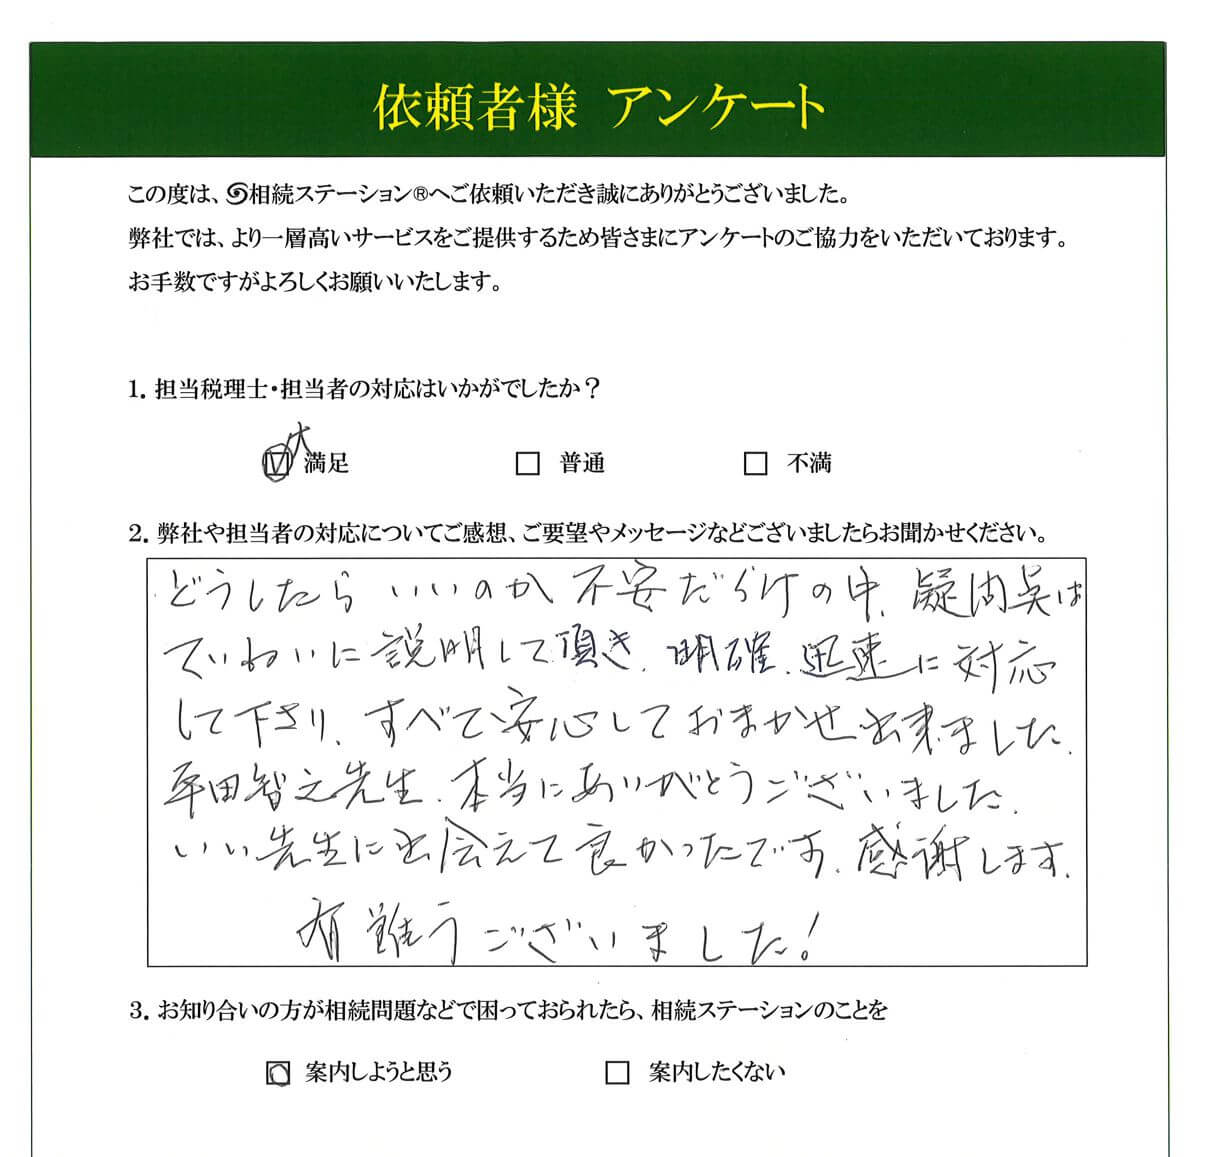 依頼者様 アンケート
この度は、相続ステーション®へご依頼いただき誠にありがとうございました。
弊社では、より一層高いサービスをご提供するため皆さまにアンケートのご協力をいただいております。
お手数ですがよろしくお願いいたします。
1. 担当税理士・担当者の対応はいかがでしたか?
☑ 大満足 □ 普通 □ 不満
2. 弊社や担当者の対応についてご感想、ご要望やメッセージなどございましたらお聞かせください。
どうしたらいいのか不安だらけの中、疑問点は
ていねいに説明して頂き、明確、迅速に対応
して下さり、すべて安心しておまかせ出来ました。
平田智之先生、本当にありがとうございました。
いい先生に出会えて良かったです。感謝します。
有難うございました!
3. お知り合いの方が相続問題などで困っておられたら、相続ステーションのことを
案内しようと思う □ 案内したくない